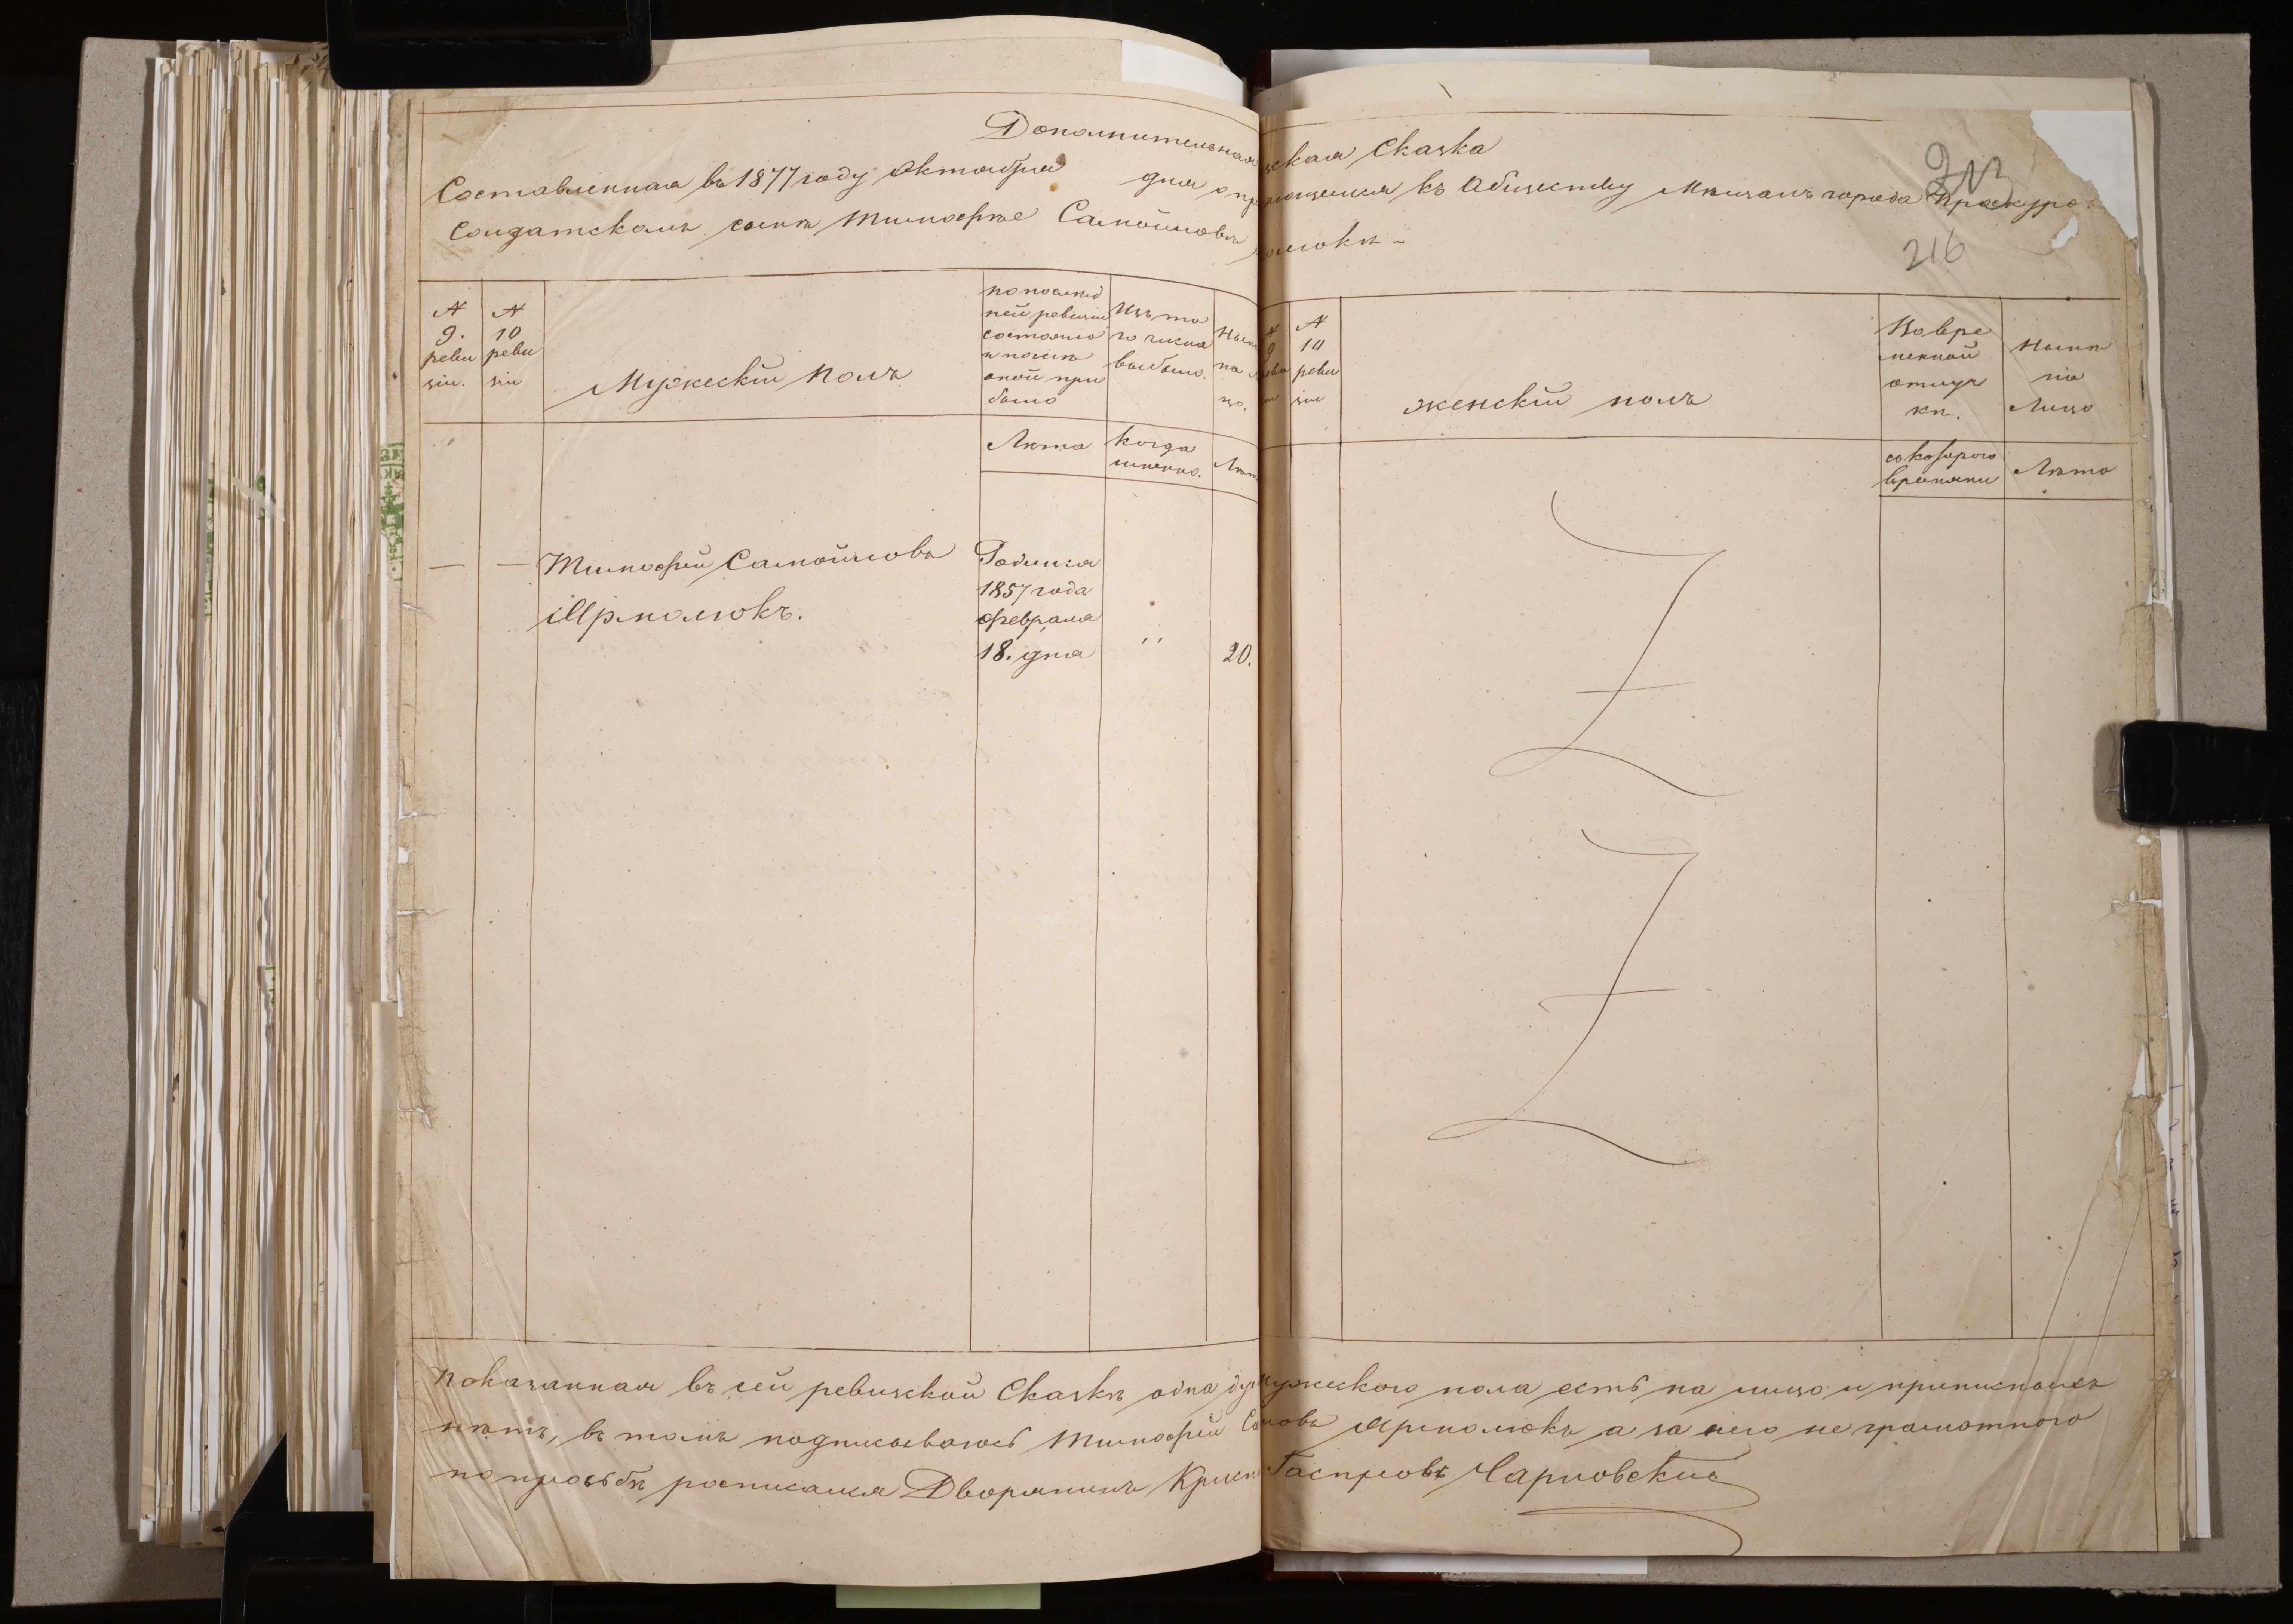 Дополнительная
ская Сказка
Составленная въ 1877 году Октября дня о при
ющемся къ Обществу Мѣщанъ города Проскуро
Солдатскомъ сынѣ Тимофѣе Самойловѣ
люкѣ -
216
№ 9. ревизіи.
№ 10 ревизіи
Мужескій полъ
По послѣдней ревизіи состояло и послѣ оной прибыло
Изъ того числа выбыло.
Лѣта
Когда именно.
Лѣт
№ 10 ревизіи
женскій полъ
Во временной отлучкѣ.
Нынѣ на Лицо
съ котораго времяни
Лѣта
— — Тимофей Самойловъ
Ярмолюкъ.
Родился
1857 года
Февраля
18. дня
"
20.
Показанная въ сей ревизской Сказкѣ одна ду Мужескаго пола есть на лицо и приписныхъ
нѣтъ, въ томъ подписываюсь Тимофей Са ловъ Ярмолюкъ а за него не грамотного
по просьбѣ росписался Дворянинъ Гаспровъ Чарновскій